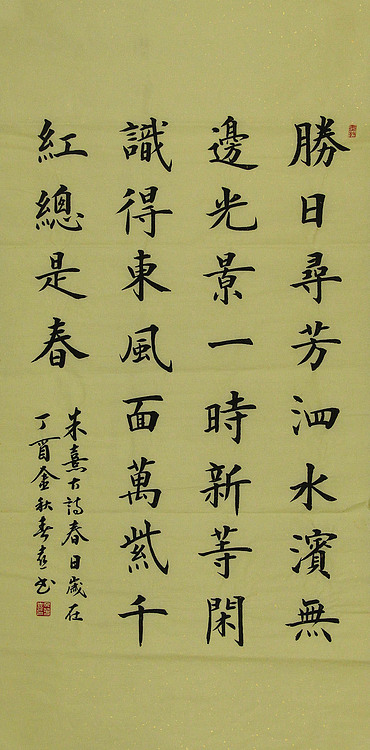 勝日尋芳泗水濱無
邊光景一時新等閑
識得東風面萬紫千
紅總是春
朱熹古詩春日歲在
丁酉金秋春意书